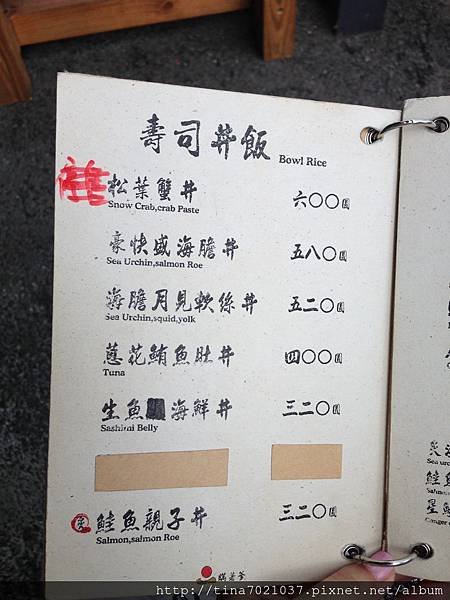 壽司丼飯 Bowl Rice
松葉蟹丼 六〇〇圓
Snow Crab,crab Paste
豪快盛海膽丼 五八〇圓
Sea Urchin,salmon Roe
海膽月見軟絲丼 五二〇圓
Sea Urchin,squid,yolk
蔥花鮪魚肚丼 四〇〇圓
Tuna
生魚 海鮮丼 三二〇圓
Sashimi Belly
鮭魚親子丼 三二〇圓
Salmon,salmon Roe
http://tina7021037.pixnet.net/album